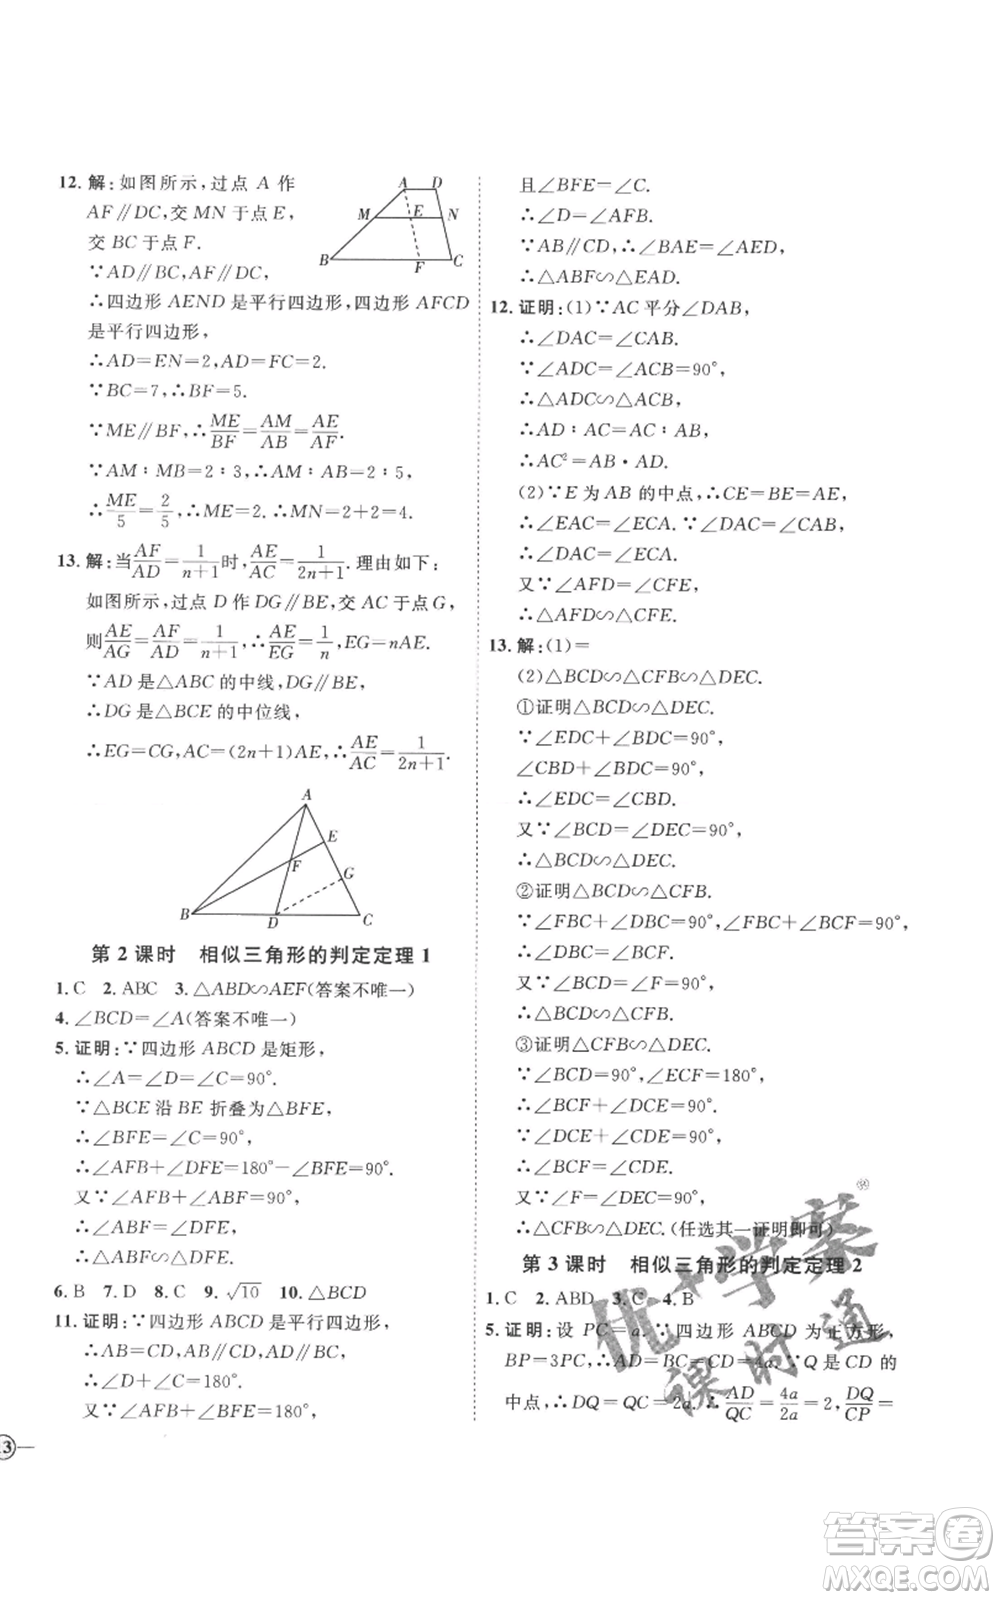 12. 解:如图所示,过点 A 作
AF∥DC,交 MN 于点 E,
交 BC 于点 F.
∵AD∥BC,AF∥DC,
∴四边形 AEND 是平行四边形,四边形 AFCD
是平行四边形,
∴AD=EN=2,AD=FC=2.
∵BC=7,∴BF=5.
∵ME∥BF,∴ME/BF=AM/AB=AE/AF.
∵AM∶MB=2∶3,∴AM∶AB=2∶5,
∴ME/5=2/5,∴ME=2.∴MN=2+2=4.
A D
M E N
B F C
13. 解:当AF/AD=1/(n+1)时,AE/AC=1/(2n+1).理由如下:
如图所示,过点 D 作 DG∥BE,交 AC 于点 G,
则AE/AG=AF/AD=1/(n+1),∴AE/EG=1/n,EG=nAE.
∵AD 是△ABC 的中线,DG∥BE,
∴DG 是△BCE 的中位线,
∴EG=CG,AC=(2n+1)AE,∴AE/AC=1/(2n+1).
A
E
F
G
B D C
第 2 课时 相似三角形的判定定理 1
1. C 2. ABC 3. △ABD∽AEF(答案不唯一)
4. ∠BCD=∠A(答案不唯一)
5. 证明:∵四边形 ABCD 是矩形,
∴∠A=∠D=∠C=90°.
∵△BCE 沿 BE 折叠为△BFE,
∴∠BFE=∠C=90°,
∴∠AFB+∠DFE=180°-∠BFE=90°.
又∵∠AFB+∠ABF=90°,
∴∠ABF=∠DFE,
∴△ABF∽△DFE.
6. B 7. D 8. C 9. √10 10. △BCD
11. 证明:∵四边形 ABCD 是平行四边形,
∴AB∥CD,AD∥BC,AD=BC,
∴∠D+∠C=180°.
又∵∠AFB+∠BFE=180°,
13
且∠BFE=∠C.
∴∠D=∠AFB.
∵AB∥CD,∴∠BAE=∠AED,
∴△ABF∽△EAD.
12. 证明:(1)∵AC 平分∠DAB,
∴∠DAC=∠CAB.
∵∠ADC=∠ACB=90°,
∴△ADC∽△ACB,
∴AD∶AC=AC∶AB,
∴AC²=AB·AD.
(2)∵E 为 AB 的中点,∴CE=BE=AE,
∴∠EAC=∠ECA.∵∠DAC=∠CAB,
∴∠DAC=∠ECA.
又∵∠AFD=∠CFE,
∴△AFD∽△CFE.
13. 解:(1)=
(2)△BCD∽△CFB∽△DEC.
①证明△BCD∽△DEC.
∵∠EDC+∠BDC=90°,
∠CBD+∠BDC=90°,
∴∠EDC=∠CBD.
又∵∠BCD=∠DEC=90°,
∴△BCD∽△DEC.
②证明△BCD∽△CFB.
∵∠FBC+∠DBC=90°,∠FBC+∠BCF=90°,
∴∠DBC=∠BCF.
又∵∠BCD=∠F=90°,
∴△BCD∽△CFB.
③证明△CFB∽△DEC.
∵∠BCD=90°,∠ECF=180°,
∴∠BCF+∠DCE=90°.
∵∠DCE+∠CDE=90°,
∴∠BCF=∠CDE.
又∵∠F=∠DEC=90°,
∴△CFB∽△DEC.(任选其一证明即可)
第 3 课时 相似三角形的判定定理 2
1. C 2. ABD 3. C 4. B
5. 证明:设 PC=a.∵四边形 ABCD 为正方形,
BP=3PC,∴AD=BC=CD=4a.∵Q 是 CD 的
中点,∴DQ=QC=2a.∴AD/QC=4a/2a=2,DQ/CP=
优+学案
课时通
答案卷
MXQE.COM